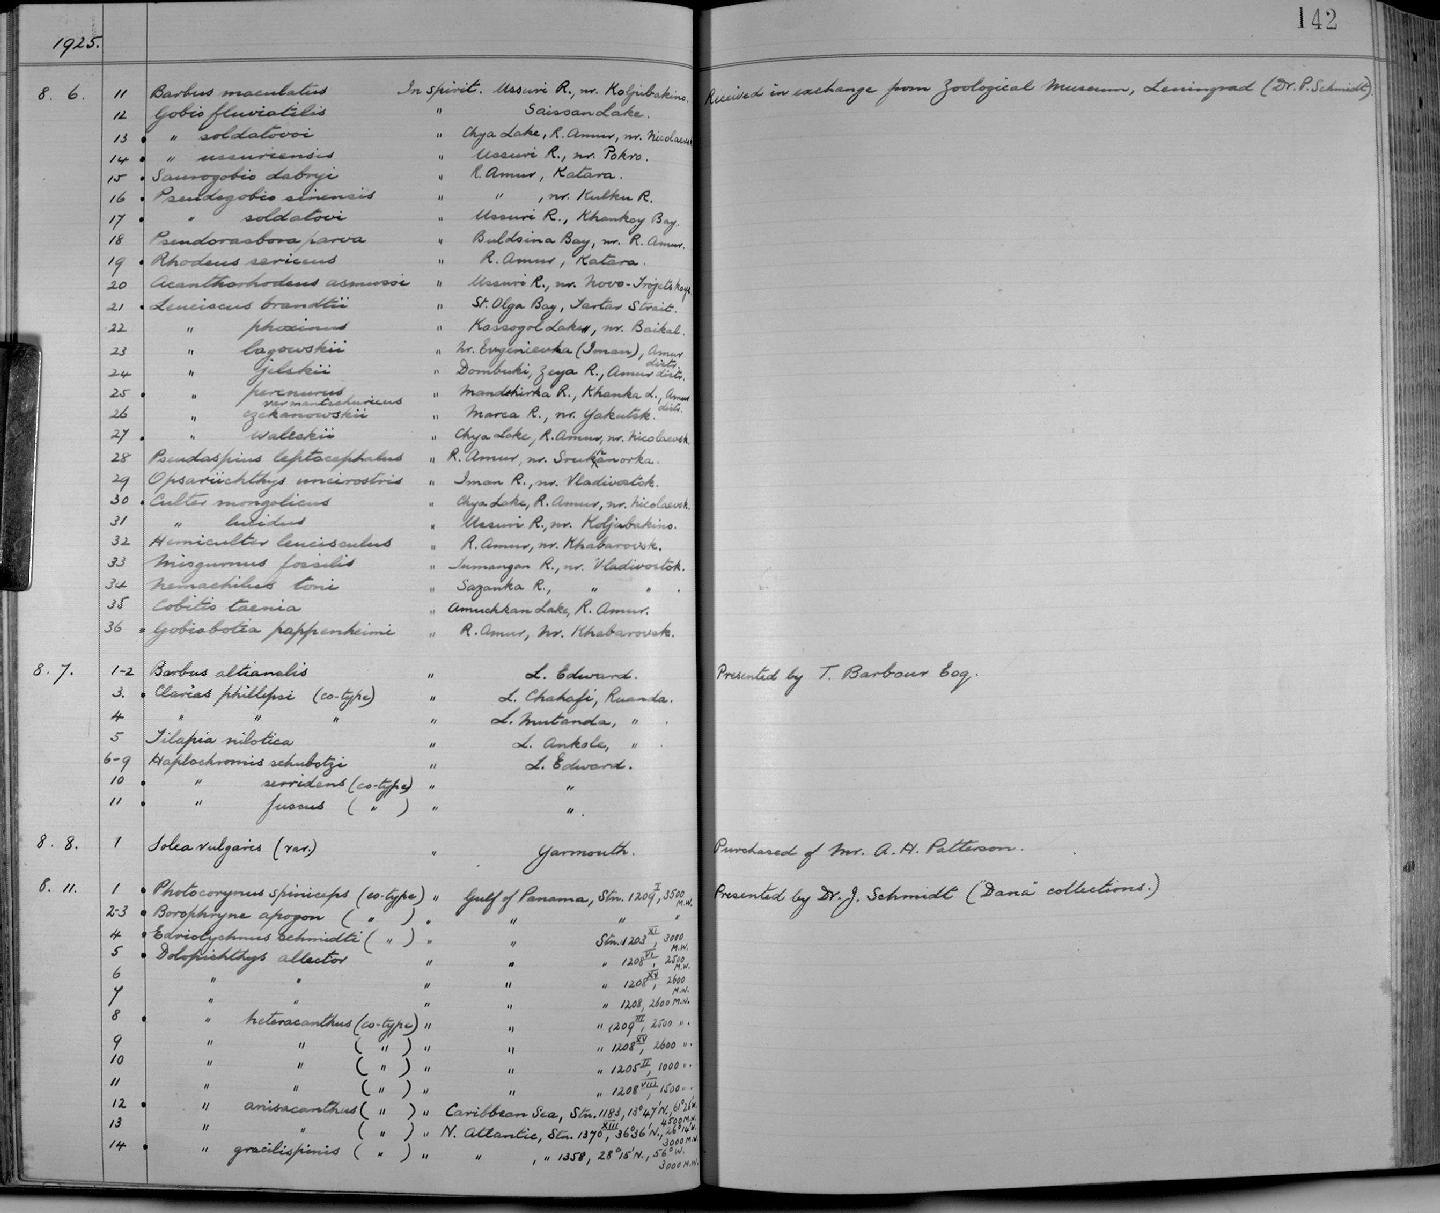 142
1925.
8. 6. 11 Barbus maculatus In spirit. Ussuri R., nr. Koljubakino. Received in exchange from Zoological Museum, Leningrad (Dr. P. Schmidt).
12 Gobio fluviatilis " Saissan Lake.
13 " soldatovi " Chya Lake, R. Amur, nr. Nicolaevsk
14 " ussuriensis " Ussuri R., nr. Pokro.
15 Saurogobio dabryi " R. Amur, Katara.
16 Pseudogobio sinensis " " , nr. Kulku R.
17 " soldatovi " Ussuri R., Khankoy Bay.
18 Pseudorasbora parva " Buldsina Bay, nr. R. Amur.
19 Rhodeus sericeus " R. Amur, Katara.
20 Acanthorhodeus asmussi " Ussuri R., nr. Novo-Trojetskaya.
21 Leuciscus brandtii " St. Olga Bay, Tartar Strait.
22 " phoxinus " Kossogol Lake, nr. Baikal.
23 " lagowskii " nr. Evgenievka (Iman), Amur distr.
24 " jelskii " Dombuki, Zeya R., Amur distr.
25 " percnurus var mantschuricus " Mandshirka R., Khanka L., Amur distr.
26 " czekanowskii " Marca R., nr. Yakutsk.
27 " waleckii " Chya Lake, R. Amur, nr. Nicolaevsk.
28 Pseudaspius leptocephalus " R. Amur, nr.
29 Opsariichthys uncirostris " Iman R., nr. Vladivostok.
30 Culter mongolicus " Chya Lake, R. Amur, nr. Nicolaevsk.
31 " lucidus " Ussuri R., nr. Koljubakino.
32 Hemiculter leucisculus " R. Amur, nr. Khabarovsk.
33 Misgurnus fossilis " Tumangan R., nr. Vladivostok.
34 Nemachilus toni " Sazanka R., " " .
35 Cobitis taenia " Amuchkan Lake, R. Amur.
36 Gobiobotia pappenheimi " R. Amur, nr. Khabarovsk.
8. 7. 1-2 Barbus altianalis " L. Edward. Presented by T. Barbour Esq.
3. Clarias phillipsi (co-type) " L. Chahafi, Ruanda.
4 " " " " L. Mutanda, " .
5 Tilapia nilotica " L. Ankole, " .
6-9 Haplochromis schubotzi " L. Edward.
10 " serridens (co-type) " "
11 " fuscus ( " ) " " .
8. 8. 1 Solea vulgaris (var.) " Yarmouth. Purchased of Mr. A. H. Patterson.
8. 11. 1 Photocorynus spiniceps (co-type) " Gulf of Panama, Stn. 1209 I, 3500 M.W. Presented by Dr. J. Schmidt ("Dana" collections.)
2-3 Borophryne apogon ( " ) " " " "
4 Edriolychnus schmidti ( " ) " " Stn. 1203 XI, 3000 M.W.
5 Dolopichthys allector " " " 1208 VI, 2500 M.W.
6 " " " " " 1208 XV, 2600 M.W.
7 " " " " " 1208, 2600 M.W.
8 " heteracanthus (co-type) " " " 1209 III, 2500 " .
9 " " ( " ) " " " 1208 XV, 2600 " .
10 " " ( " ) " " " 1205 II, 1000 " .
11 " " ( " ) " " " 1208 VIII, 1500 " .
12 " anisacanthus ( " ) " Caribbean Sea, Stn. 1183, 13°47'N, 61°26'W. 4500 M.W.
13 " " ( " ) " N. Atlantic, Stn. 1370 XIII, 36°36'N., 26°14'W. 3000 M.W.
14 " gracilispinis ( " ) " " , " 1358, 28°15'N., 56°W. 3000 M.W.